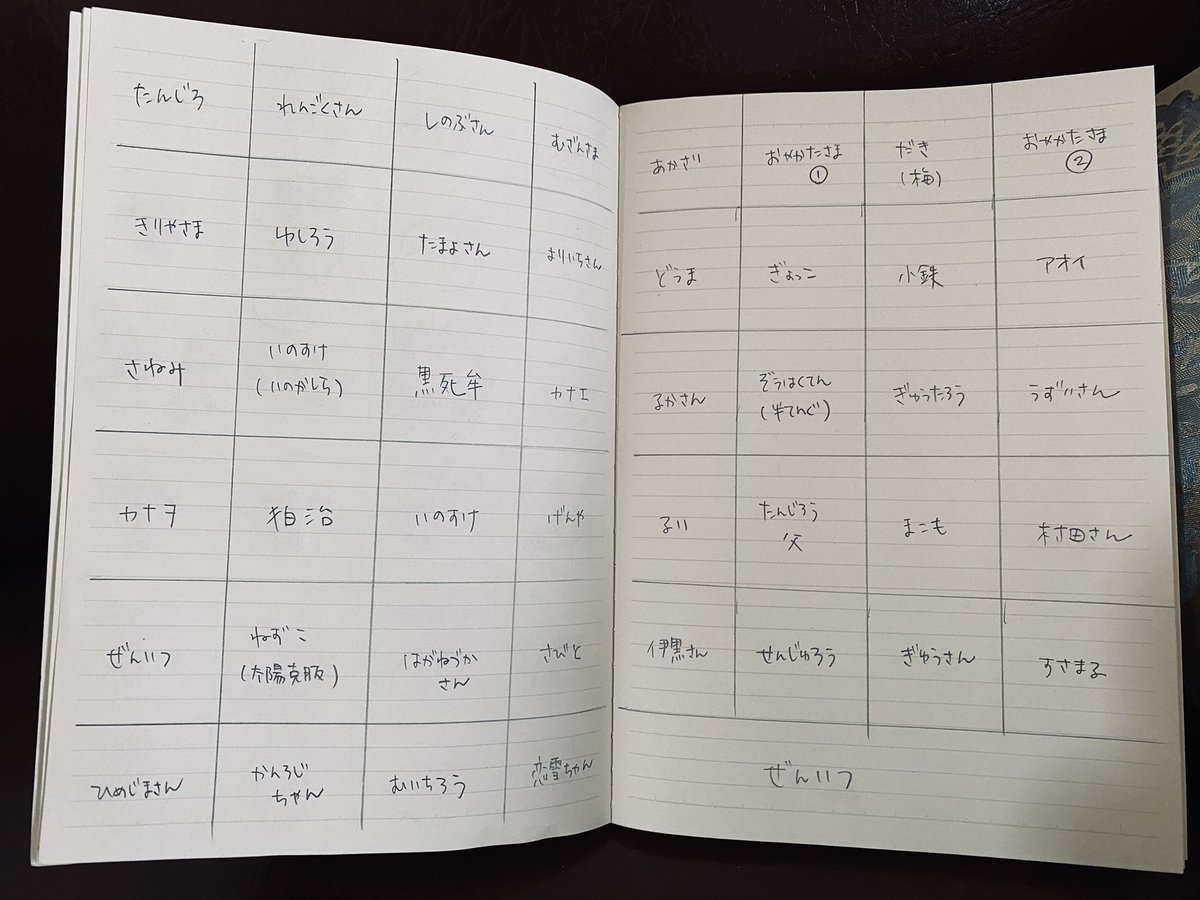 たんじろ
れんごくさん
しのぶさん
むざんさま
きりやさま
ゆしろう
たまよさん
よりいちさん
さねみ
いのすけ
(いのがしら)
黒死牟
カナエ
カナヲ
狛治
いのすけ
げんや
ぜんいつ
ねずこ
(太陽克服)
はがねづか
さん
さびと
ひめじまさん
かんろじ
ちゃん
むいちろう
恋雪ちゃん
あかざ
おやかたさま
①
だき
(梅)
おやかたさま
②
どうま
ぎょっこ
小鉄
アオイ
るかさん
ぞうはくてん
(半てんぐ)
ぎゅうたろう
うずいさん
るい
たんじろう
父
まこも
村田さん
伊黒さん
せんじゅろう
ぎゆうさん
すさまる
ぜんいつ